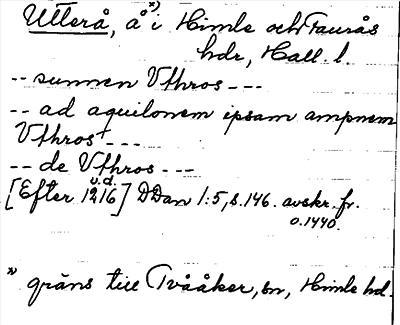 Utterå, å *) i Himle och Faurås
hdr, Hall. l.
-- sunnen Vthros ---
-- ad aquilonem ipsam ampnem
Vthros ---
-- de Vthros ---
[Efter 1216] u.d. DDan 1:5, s.146. avskr. fr.
o.1440.
*) gräns till Tvååker, sn, Himle hd.